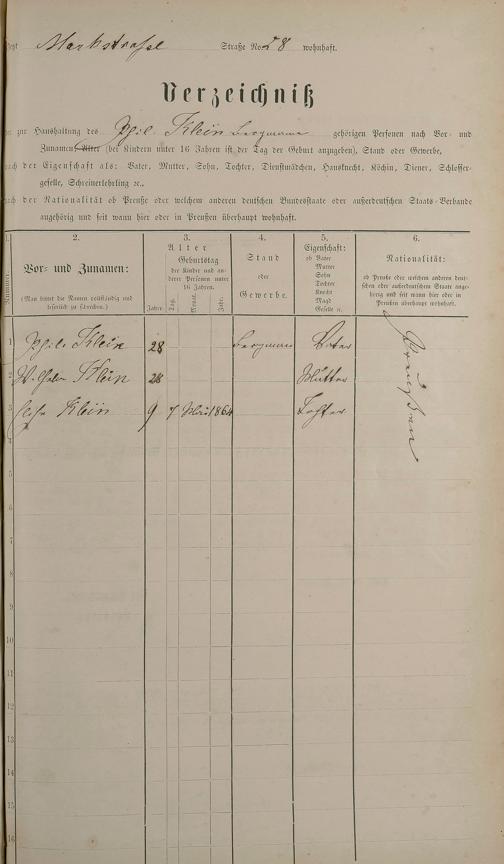 Jetzt Markstraße Straße No. 58 wohnhaft.
Verzeichniß
der zur Haushaltung des Phil. Klein Bergmann gehörigen Personen nach Vor- und
Zunamen, Alter (bei Kindern unter 16 Jahren ist der Tag der Geburt anzugeben), Stand oder Gewerbe,
nach der Eigenschaft als: Vater, Mutter, Sohn, Tochter, Dienstmädchen, Hausknecht, Köchin, Diener, Schlosser-
geselle, Schreinerlehrling ꝛc.,
nach der Nationalität ob Preuße oder welchem anderen deutschen Bundesstaate oder außerdeutschen Staats-Verbande
angehörig und seit wann hier oder in Preußen überhaupt wohnhaft.
1.
Nummer.
2.
Vor- und Zunamen:
(Man bittet die Namen vollständig und
leserlich zu schreiben.)
3.
Alter
Geburtstag
der Kinder und an-
derer Personen unter
16 Jahren.
Jahre. Tag. Monat. Jahr.
4.
Stand
oder
Gewerbe.
5.
Eigenschaft:
ob Vater
Mutter
Sohn
Tochter
Knecht
Magd
Geselle ꝛc.
6.
Nationalität:
ob Preuße oder welchem anderen deut-
schen oder außerdeutschen Staate ange-
hörig und seit wann hier oder in
Preußen überhaupt wohnhaft.
1 Phil. Klein 28 Bergmann Vater Preußen
2 Klein 28 Mutter
3 Klein 9 7 1864 Tochter
4
5
6
7
8
9
10
11
12
13
14
15
16